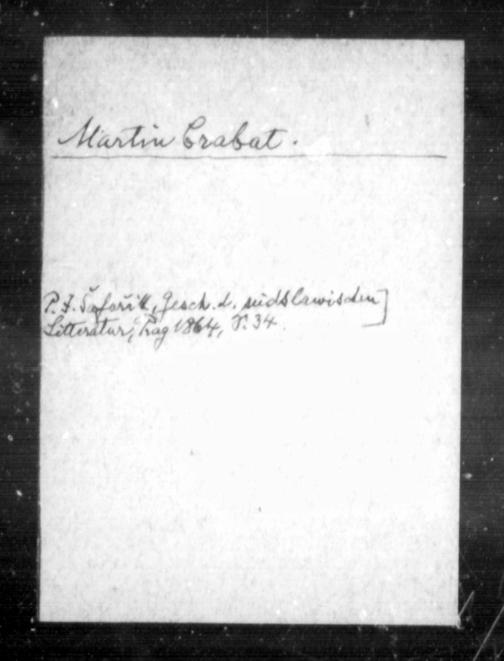 Martin Crabat.
P. J. Šafařík, Gesch. d. südslawischen]
Litteratur, Prag 1864, S. 34